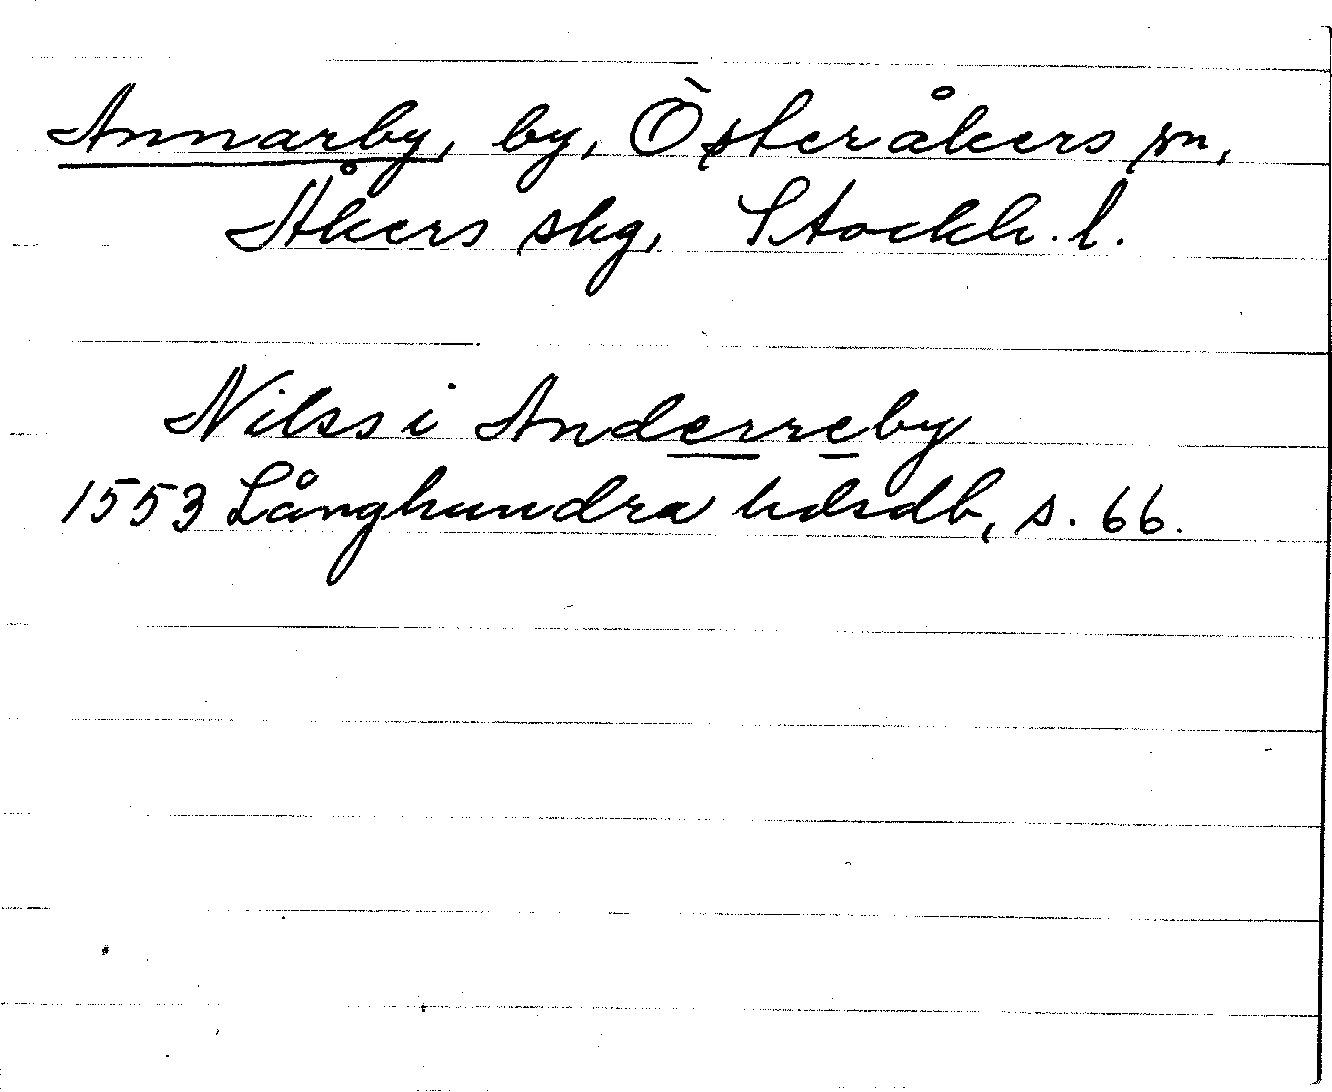 Annarby, by, Österåkers sn,
Åkers skg, Stockh. l.
Nilss i Anderreby
1553 Långhundra hdsdb, s. 66.